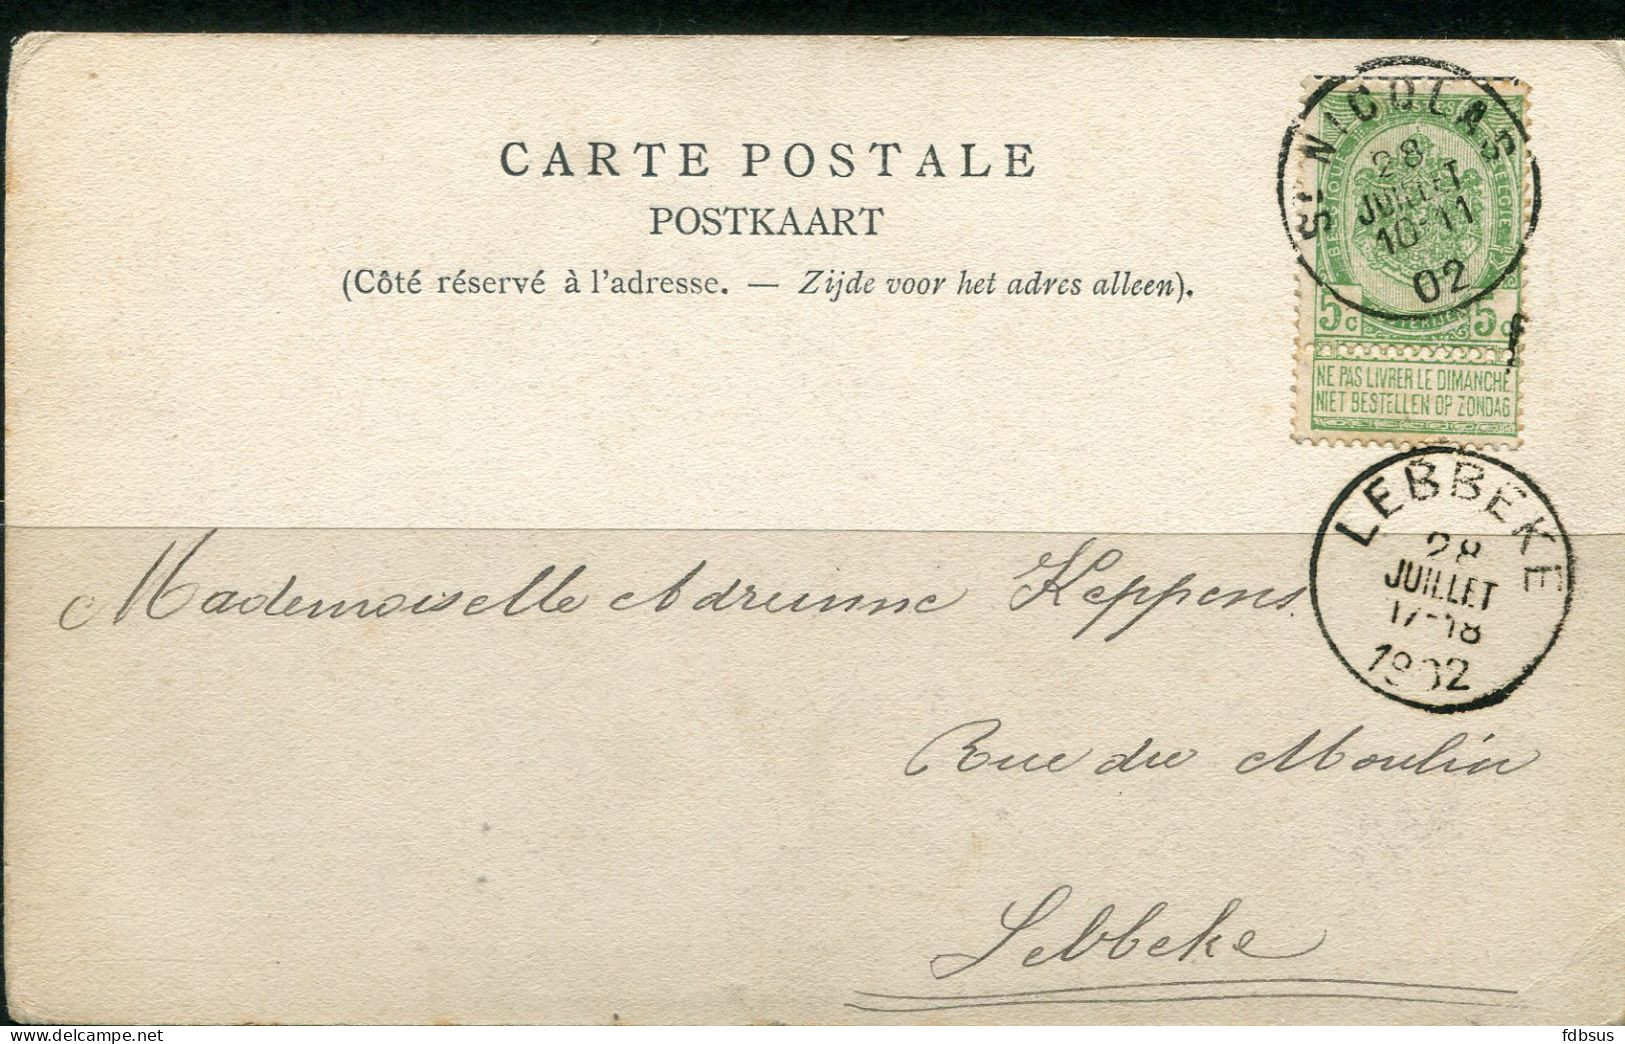 CARTE POSTALE
POSTKAART
(Côté réservé à l'adresse. — Zijde voor het adres alleen).
ST NICOLAS
28
JUILLET
10-11
02
BELGIQUE
BELGIE
5c 5c
NE PAS LIVRER LE DIMANCHE
NIET BESTELLEN OP ZONDAG
LEBBEKE
28
JUILLET
17-18
1902
Mademoiselle Adrienne Keppens
Rue du Moulin
Lebbeke
delcampe.net
fdbsus